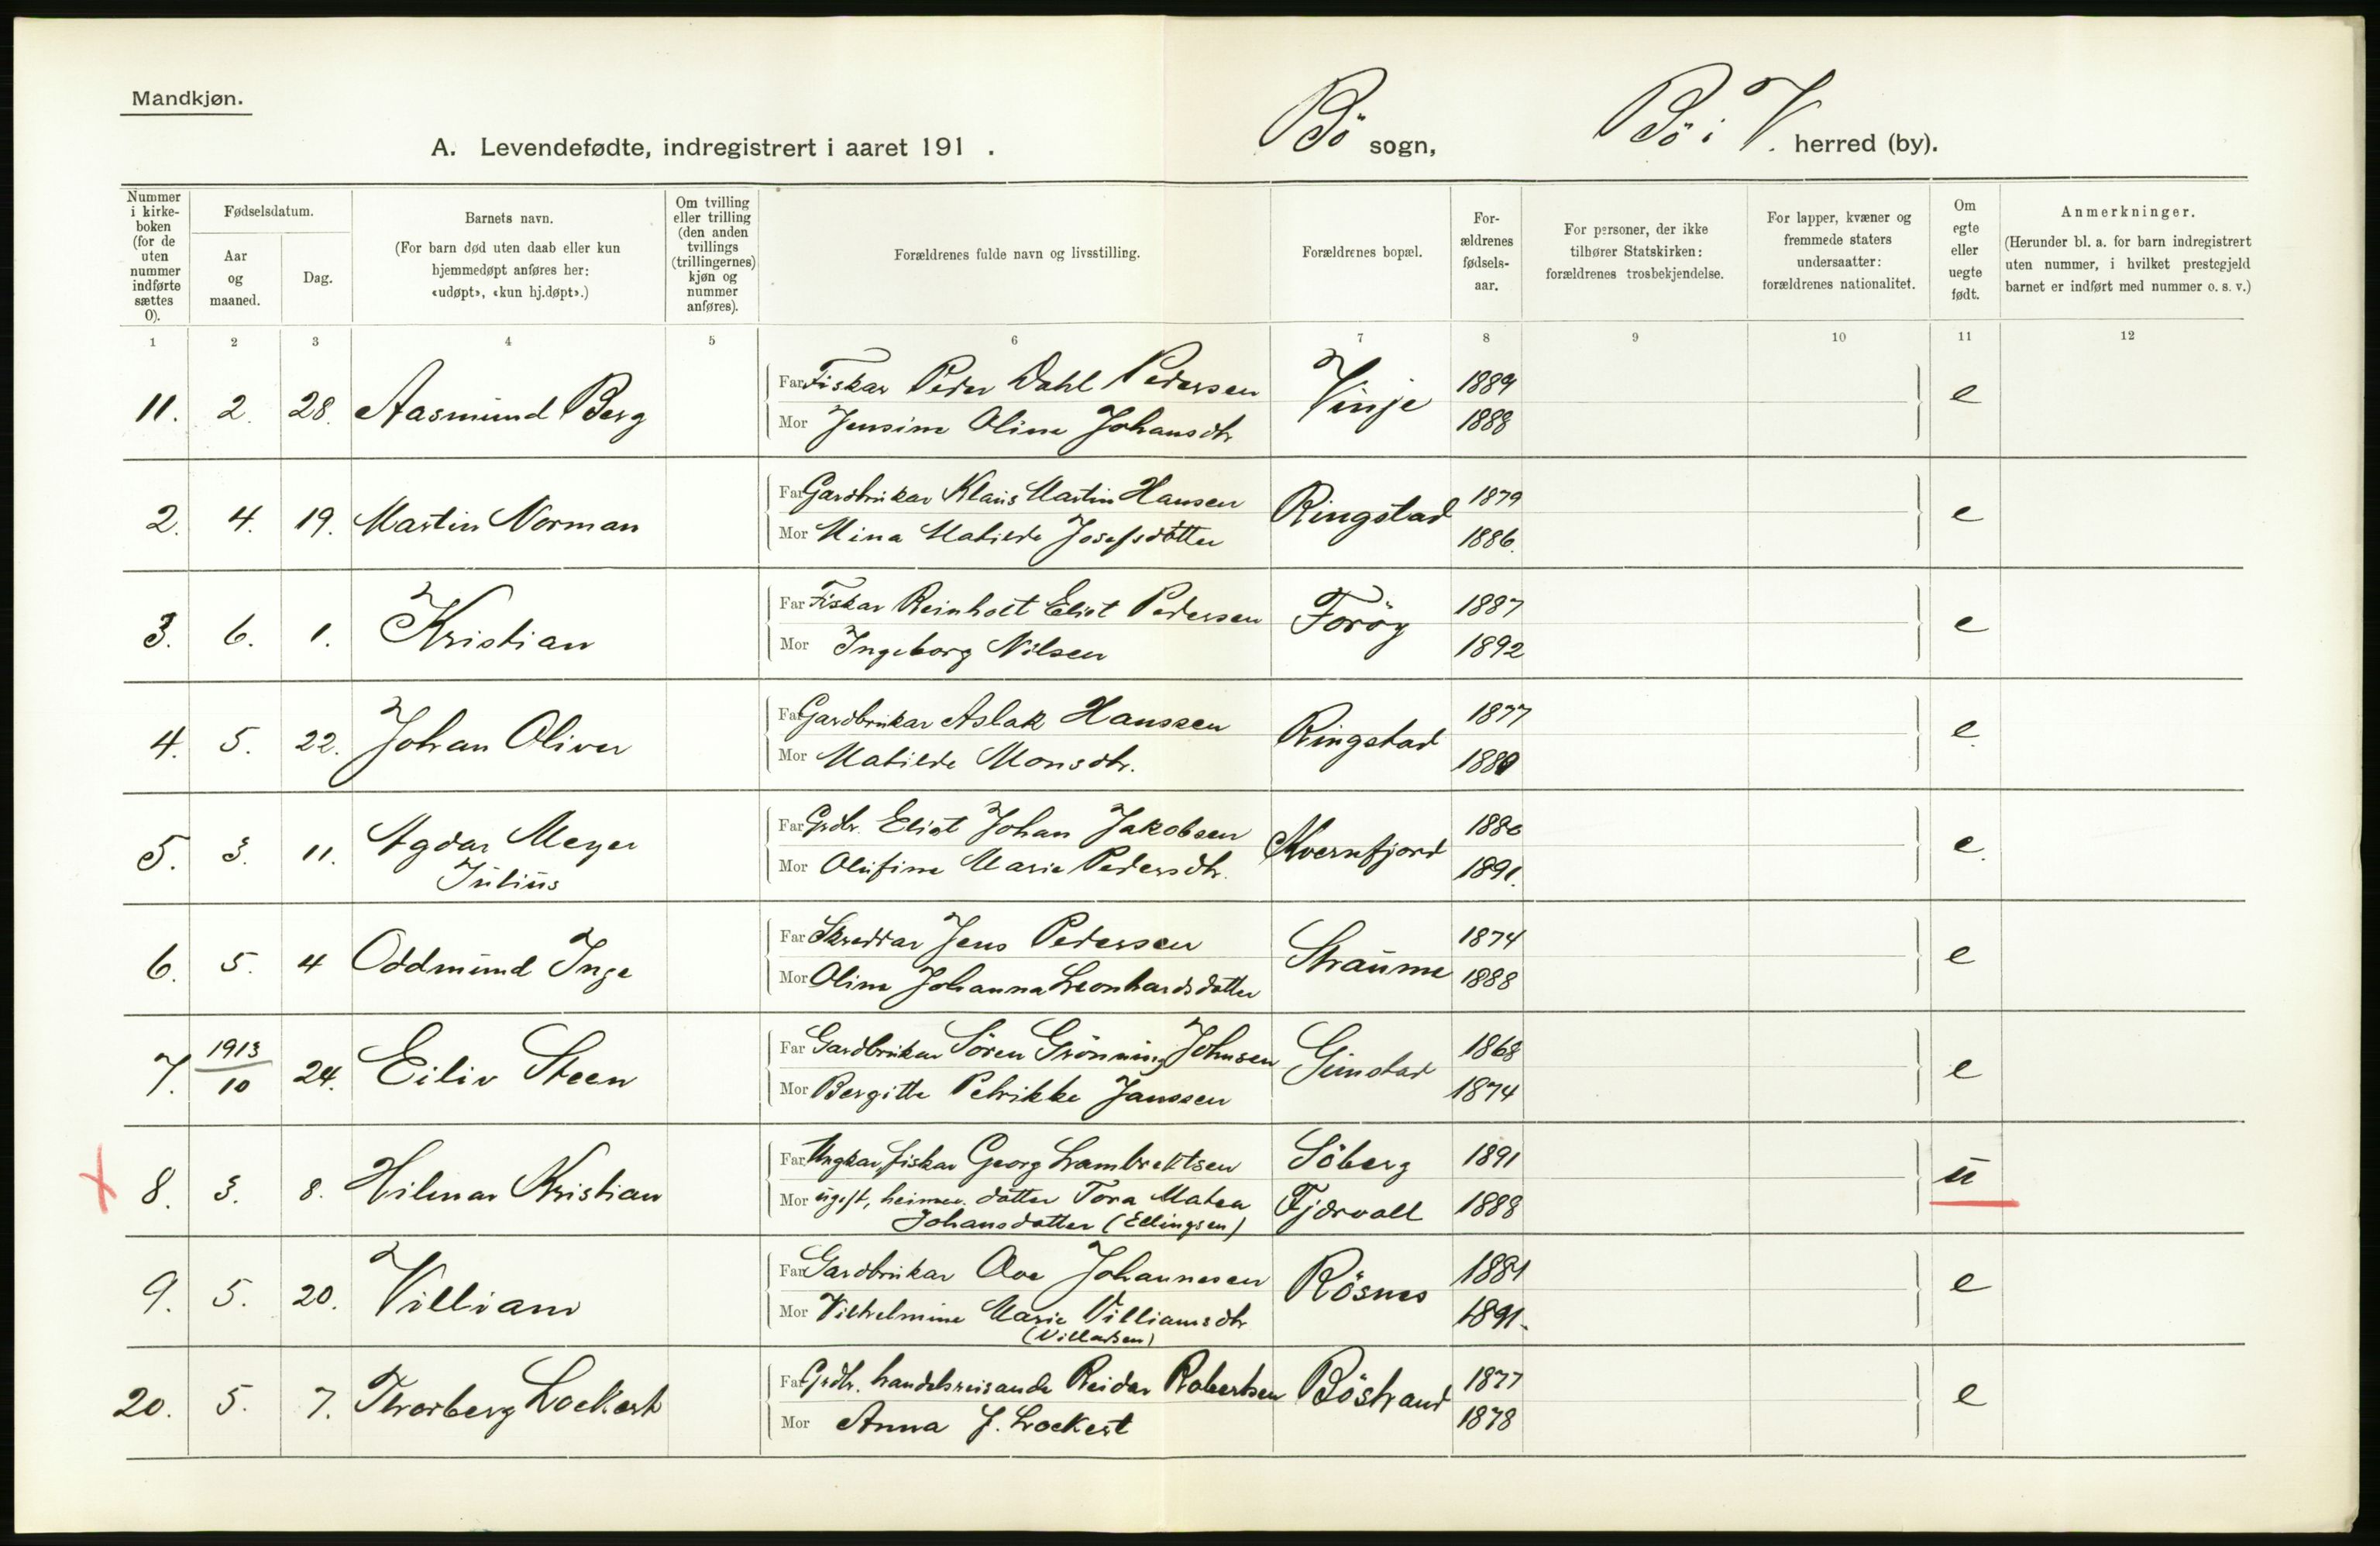 Mandkjøn.
A. Levendefødte, indregistrert i aaret 191 . Bö sogn, Bö i V. herred (by).
Nummer i kirkeboken (for de uten nummer indførte sættes 0).
Fødselsdatum.
Aar og maaned.
Dag.
Barnets navn.
(For barn død uten daab eller kun hjemmedøpt anføres her: «udøpt», «kun hj.døpt».)
Om tvilling eller trilling (den anden tvillings (trillingernes) kjøn og nummer anføres).
Forældrenes fulde navn og livsstilling.
Forældrenes bopæl.
Forældrenes fødselsaar.
For personer, der ikke tilhører Statskirken: forældrenes trosbekjendelse.
For lapper, kvæner og fremmede staters undersaatter: forældrenes nationalitet.
Om egte eller uegte født.
Anmerkninger.
(Herunder bl. a. for barn indregistrert uten nummer, i hvilket prestegjeld barnet er indført med nummer o. s. v.)
1 2 3 4 5 6 7 8 9 10 11 12
11. 2. 28. Aasmund Berg Far Fiskar Peder Dahl Pedersen Vinje 1889 e
Mor Jensine Oline Johansdtr 1888
2. 4. 19. Martin Norman Far Gardbrukar Klaus Martin Hansen Ringstad 1879 e
Mor Mina Matilde Josefsdotter 1886.
3. 6. 1. Kristian Far Fiskar Reinholt Eliot Pedersen Foröy 1887 e
Mor Ingeborg Nilsen 1892
4. 5. 22. Johan Oliver Far Gardbrukar Aslak Hanssen Ringstad 1877 e.
Mor Matilde Monsdtr. 1880
5. 3. 11. Agdar Meyer Julius Far Grdbr. Eliot Johan Jakobsen Kvernfjord 1880 e.
Mor Olufine Marie Pedersdtr. 1891.
6. 5. 4 Oddmund Inge Far Skreddar Jens Pedersen Straume 1874 e
Mor Oline Johanna Leonhardsdotter 1888
7. 1913/10 24. Eiliv Steen Far Gardbrukar Sören Grönning Johnsen Gimstad 1868 e
Mor Bergitte Petrikke Janssen 1874
8. 3. 8. Hilmar Kristian Far Ungkar, fiskar Georg Lambrektsen Söberg 1891 u
Mor ugift, heimev. dotter Tora Matea Johansdotter (Ellingsen) Fjærvoll 1888
9. 5. 20. Villiam Far Gardbrukar Ove Johannesen Rösnes 1881 e
Mor Vilhelmine Marie Villiamsdtr (Villadsen) 1891.
20. 5. 7. Thorberg Lockert Far Grdbr. handelsreisande Reidar Robertsen Böstrand 1877 e
Mor Anna J. Lockert 1878